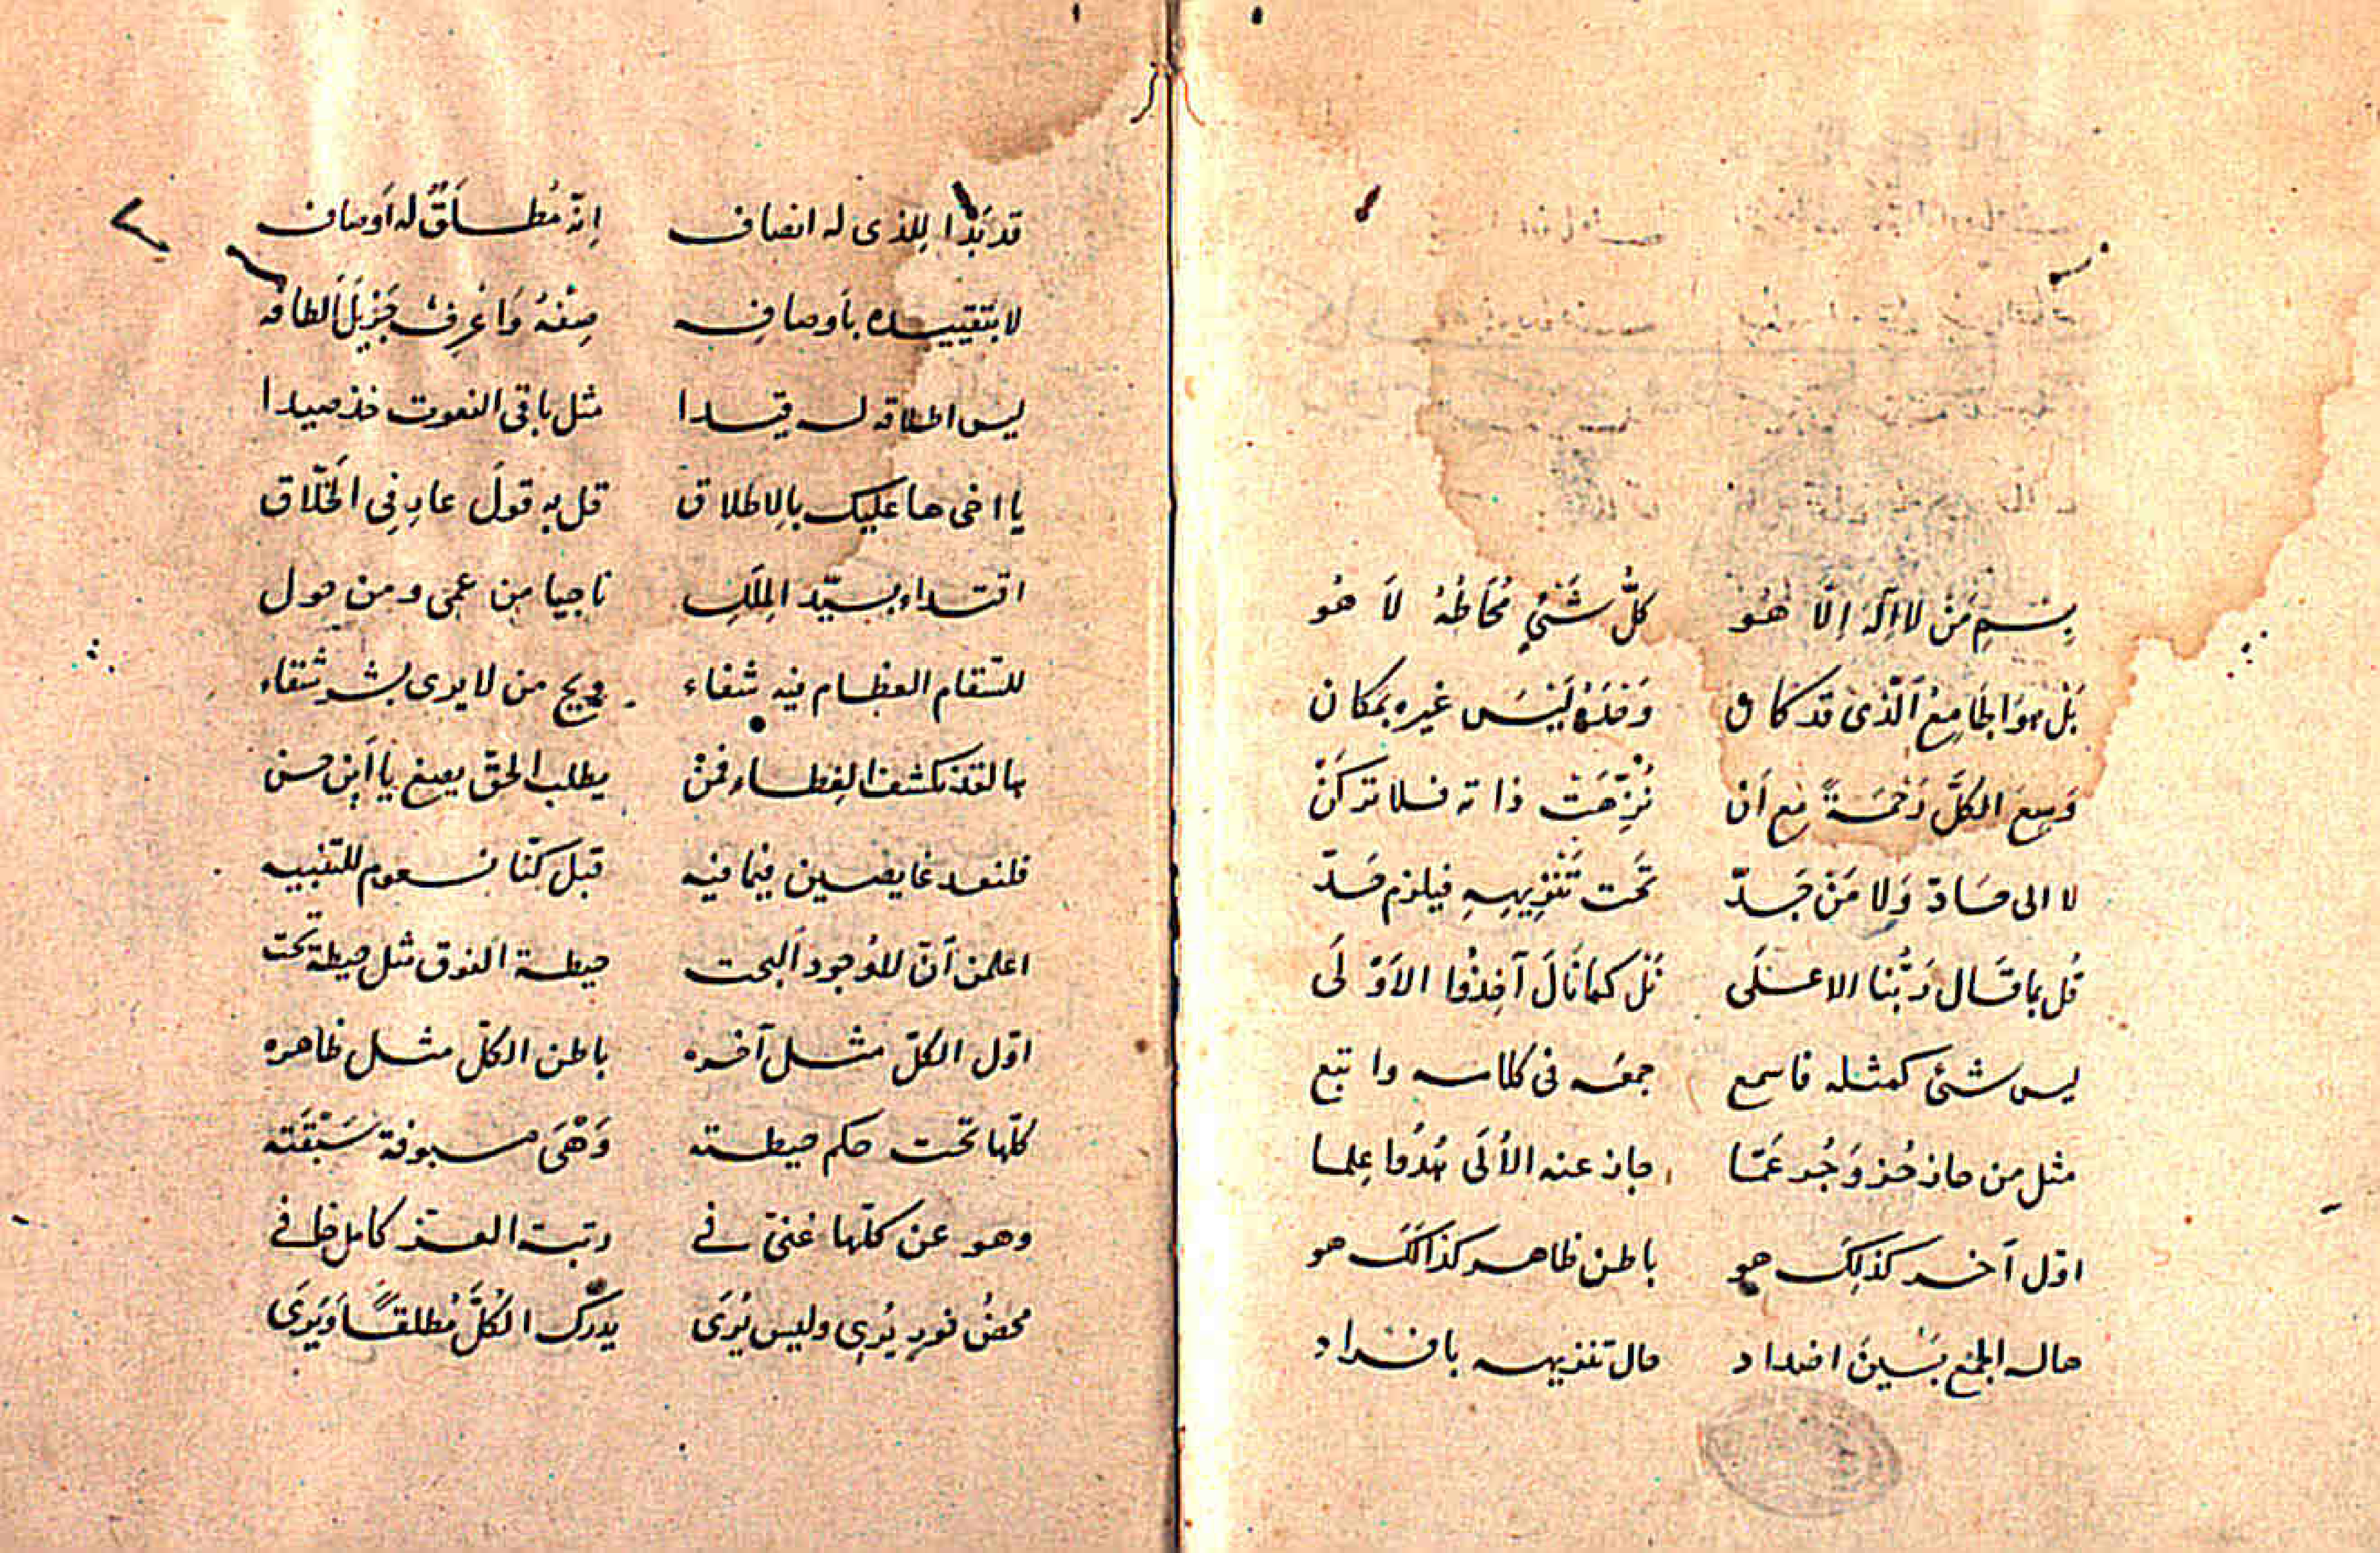 بِسْمِ مَنْ لا اِلٰهَ اِلَّا هُو كُلُّ شَیْءٍ مُحَاطُهُ لَا هُو
بَلْ هوَ الجَامِعُ الَّذی قد كان وَحْدَهُ لَيْسَ غيره بمَكان
وَسِعَ الكلَّ رَحْمَةً مَع اَن نُزِّهَتْ ذاته فلا تركَنْ
لا الى صَادّ وَلا مَنْ جَدّ تَحت تَنْزِيهِهِ فيلزم حَدّ
قُل بما قَال رَبُّنا الاعلَى نَلْ كمَا نَالَ آخِذُوا الاَوْلَى
ليس شئ كمثله فاسمع جمعه فى كلامه واتبع
مثل من حاز حُز وَجُز عَمّا جاز عنه الاُلَى هُدُوا عِلما
اوّل آخر كذلِكَ هو باطن ظاهر كذالكَ هو
حاله الجمع بَيْنَ اضداد حال تنزيهه بافراد
قد بَدَا لِلذى له انصاف اِنّه مُطلَقٌ له اَوصاف
لا بتَقييده باَوصافه صِفْهُ وَاعْرِفْ جَزِيلَ اَلطافه
ليس اطلاقه له قيدا مثل باقى النعوت خذ صيدا
يا اخى ها عليك بالاطلاق قل به قولَ عارِفِی الخَلّاق
اقتداء بسيّد المِلَلِ ناجيا مِن عمى ومن حول
للسّقام العظام فيه شفاء ويح من لا يرى بشر شفاء
ها لقد كشفنا الغطاء فمَنْ يطلب الحقّ يصغ يا ابن حسن
فلنعد غايصين فيما فيه قبل كنّا نعوم للتنبيه
اعلمن اَنّ للوُجود البحت حيطة الفوق مثل حيطة تحت
اوّل الكلّ مثل آخره باطن الكلّ مثل ظاهره
كلّها تحت حكم حيطته وَهْىَ مسبوقة سَبْقَته
وهو عن كلّها غنىّ فى رتبة العز كامل ظافى
محضُ نورٍ يُرِى وليس يُرَى يدرك الكُلَّ مُطلقًا وَيَرَى